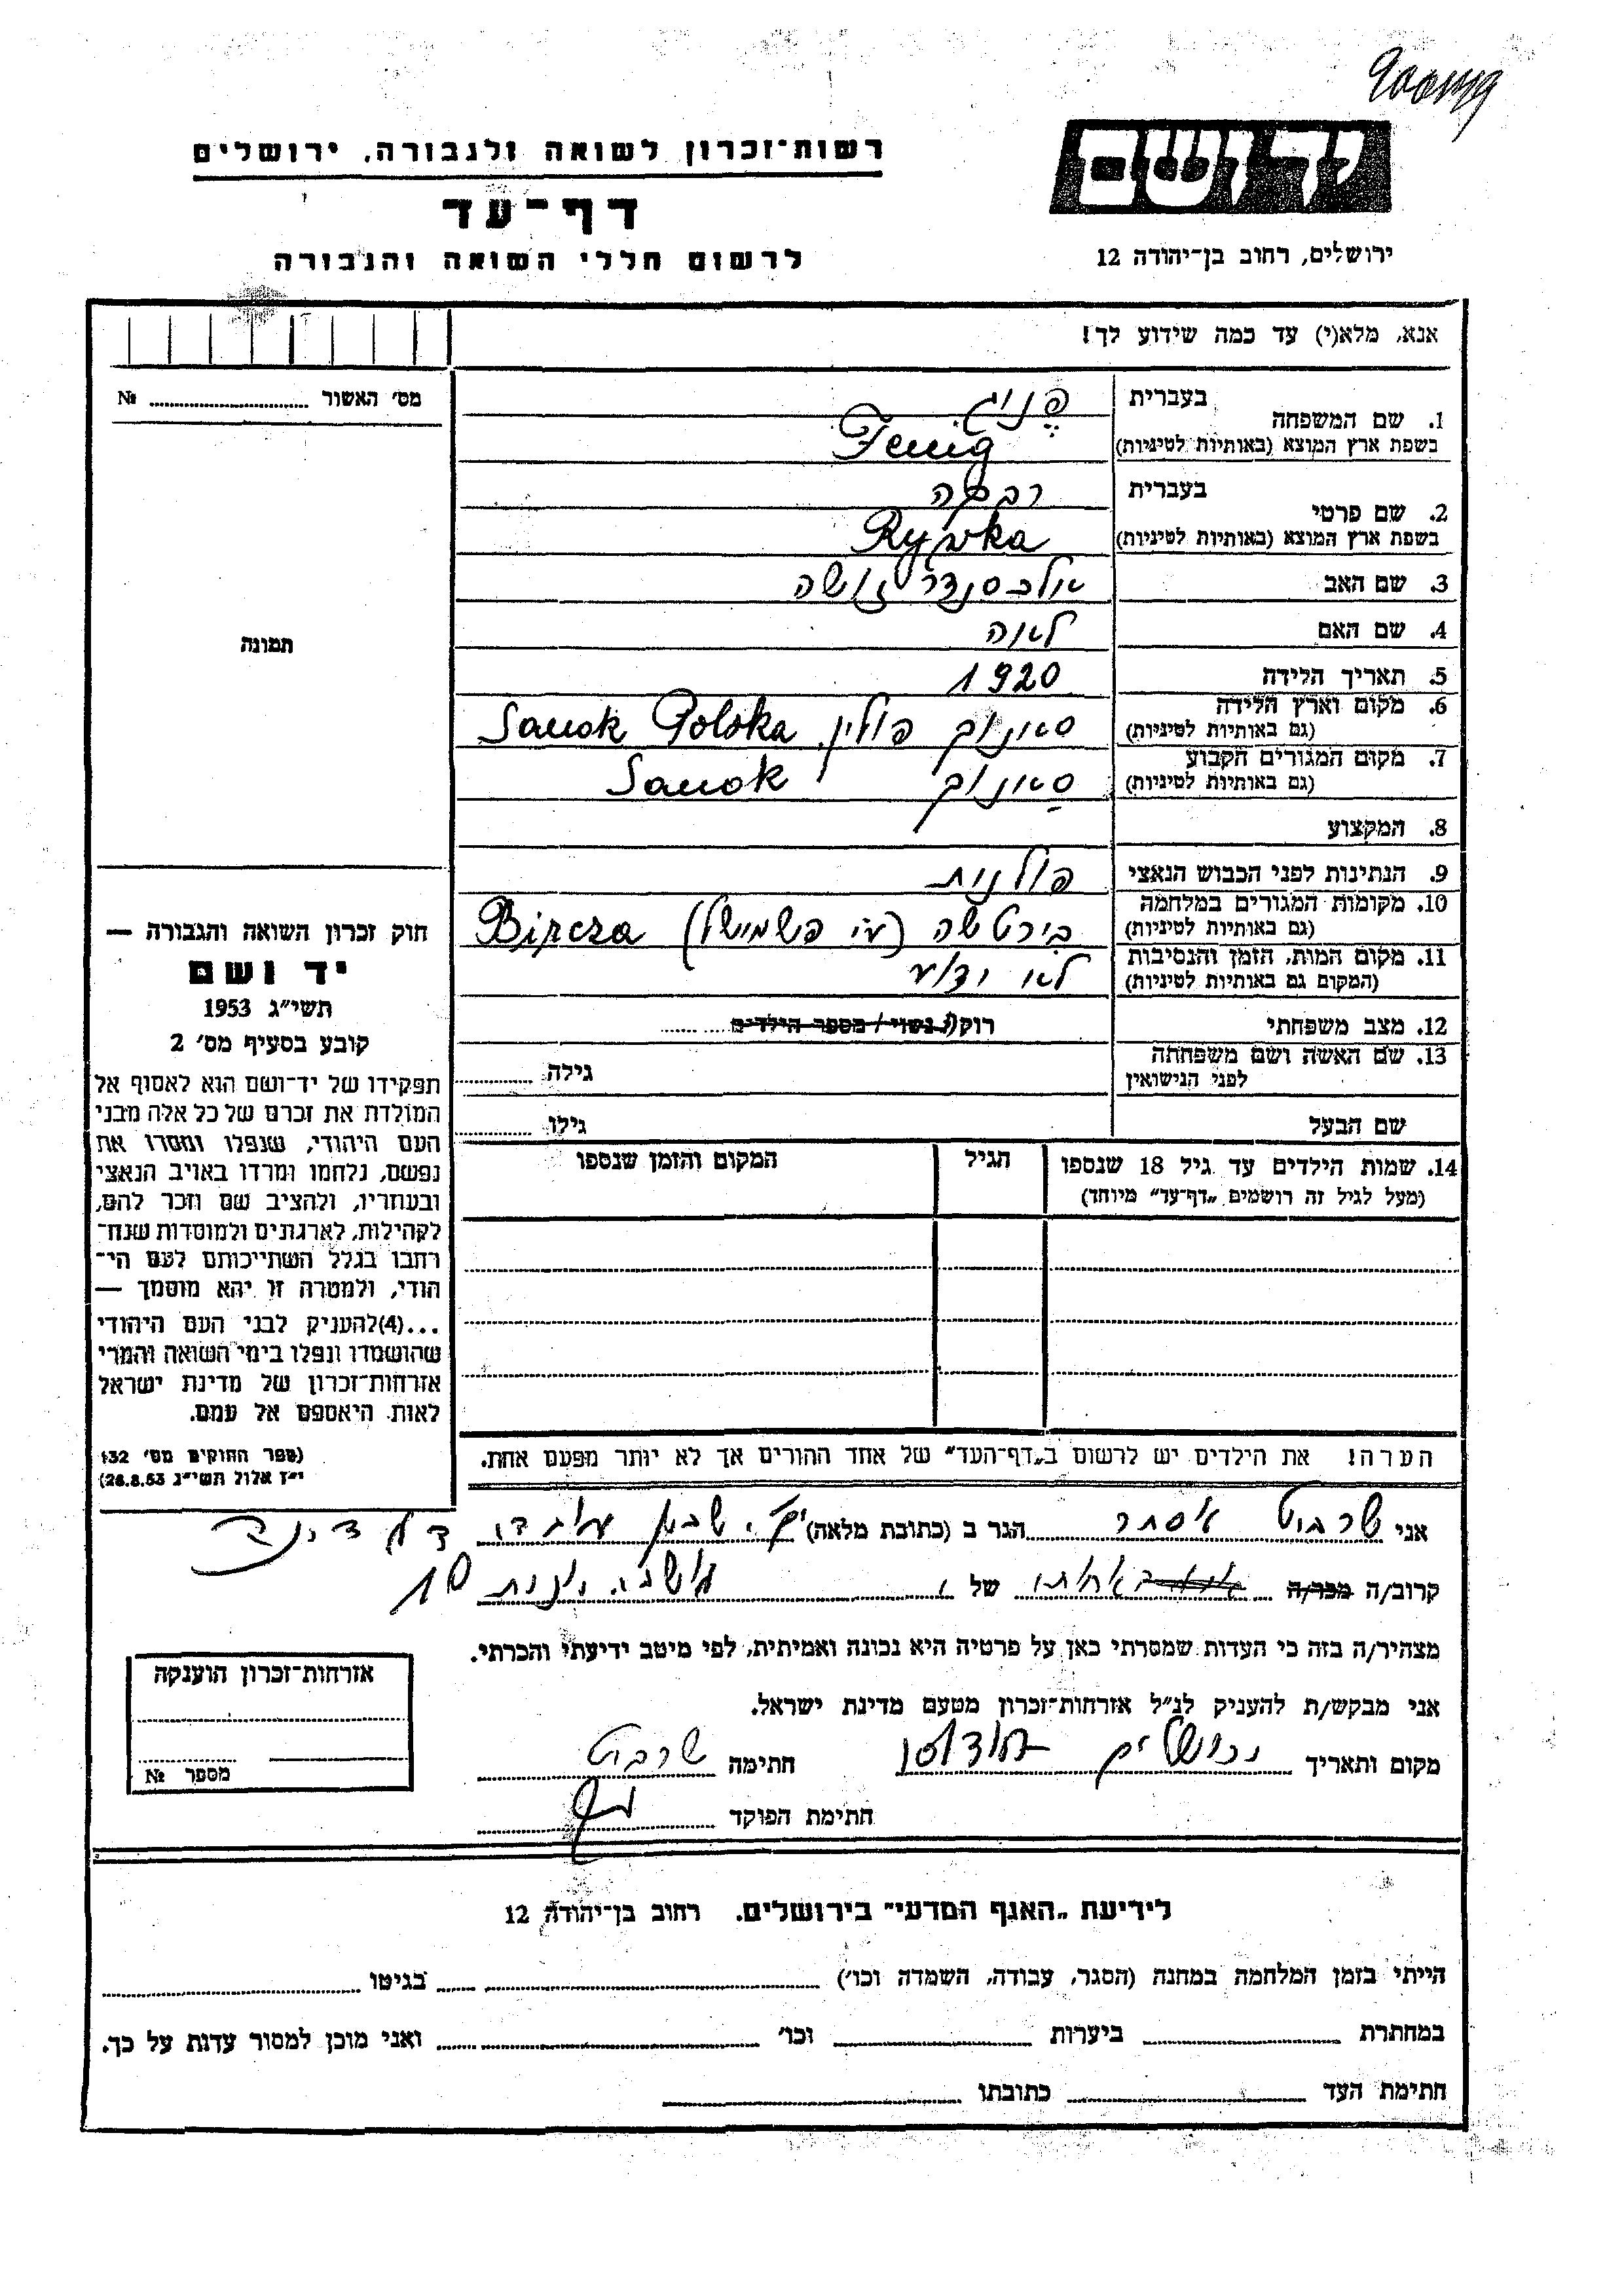 יד ושם
רשות־זכרון לשואה ולגבורה, ירושלים
דף־עד
לרשום חללי השואה והגבורה
ירושלים, רחוב בן־יהודה 12
אנא, מלא(י) עד כמה שידוע לך!
מס׳ האשור № 
תמונה
1. שם המשפחה
בעברית פניג
בשפת ארץ המוצא (באותיות לטיניות) Fenig
2. שם פרטי
בעברית רבקה
בשפת ארץ המוצא (באותיות לטיניות) Rywka
3. שם האב אלכסנדר זושה
4. שם האם לאה
5. תאריך הלידה 1920
6. מקום וארץ הלידה (גם באותיות לטיניות) סאנוק פולין Sanok Polska
7. מקום המגורים הקבוע (גם באותיות לטיניות) סאנוק Sanok
8. המקצוע
9. הנתינות לפני הכבוש הנאצי פולנית
10. מקומות המגורים במלחמה (גם באותיות לטיניות) בירטשה (ע״י פשמישל) Bircza
11. מקום המות, הזמן והנסיבות (המקום גם באותיות לטיניות) לא ידוע
12. מצב משפחתי רוק/ה נשוי / מספר הילדים
13. שם האשה ושם משפחתה לפני הנישואין גילה
שם הבעל גילו
14. שמות הילדים עד גיל 18 שנספו
(מעל לגיל זה רושמים „דף־עד״ מיוחד)
הגיל
המקום והזמן שנספו
חוק זכרון השואה והגבורה —
יד ושם
תשי״ג 1953
קובע בסעיף מס׳ 2
תפקידו של יד־ושם הוא לאסוף אל
המולדת את זכרם של כל אלה מבני
העם היהודי, שנפלו ומסרו את
נפשם, נלחמו ומרדו באויב הנאצי
ובעוזריו, ולהציב שם וזכר להם,
לקהילות, לארגונים ולמוסדות שנח־
רבו בגלל השתייכותם לעם הי־
הודי, ולמטרה זו יהא מוסמך —
...(4)להעניק לבני העם היהודי
שהושמדו ונפלו בימי השואה והמרי
אזרחות־זכרון של מדינת ישראל
לאות היאספם אל עמם.
(ספר החוקים מס׳ 132
י״ז אלול תשי״ג 28.8.53)
הערה! את הילדים יש לרשום ב„דף־העד״ של אחד ההורים אך לא יותר מפעם אחת.
אני שרביט אסתר הגר ב (כתובת מלאה)
קרוב/ה מכר/ה אחותי של
מצהיר/ה בזה כי העדות שמסרתי כאן על פרטיה היא נכונה ואמיתית, לפי מיטב ידיעתי והכרתי.
אני מבקש/ת להעניק לנ״ל אזרחות־זכרון מטעם מדינת ישראל.
מקום ותאריך ירושלים חתימה שרביט
חתימת הפוקד
אזרחות־זכרון הוענקה
מספר №
לידיעת „האגף המדעי״ בירושלים. רחוב בן־יהודה 12
הייתי בזמן המלחמה במחנה (הסגר, עבודה, השמדה וכו׳) בגיטו
במחתרת ביערות וכו׳ ואני מוכן למסור עדות על כך.
חתימת העד כתובתו